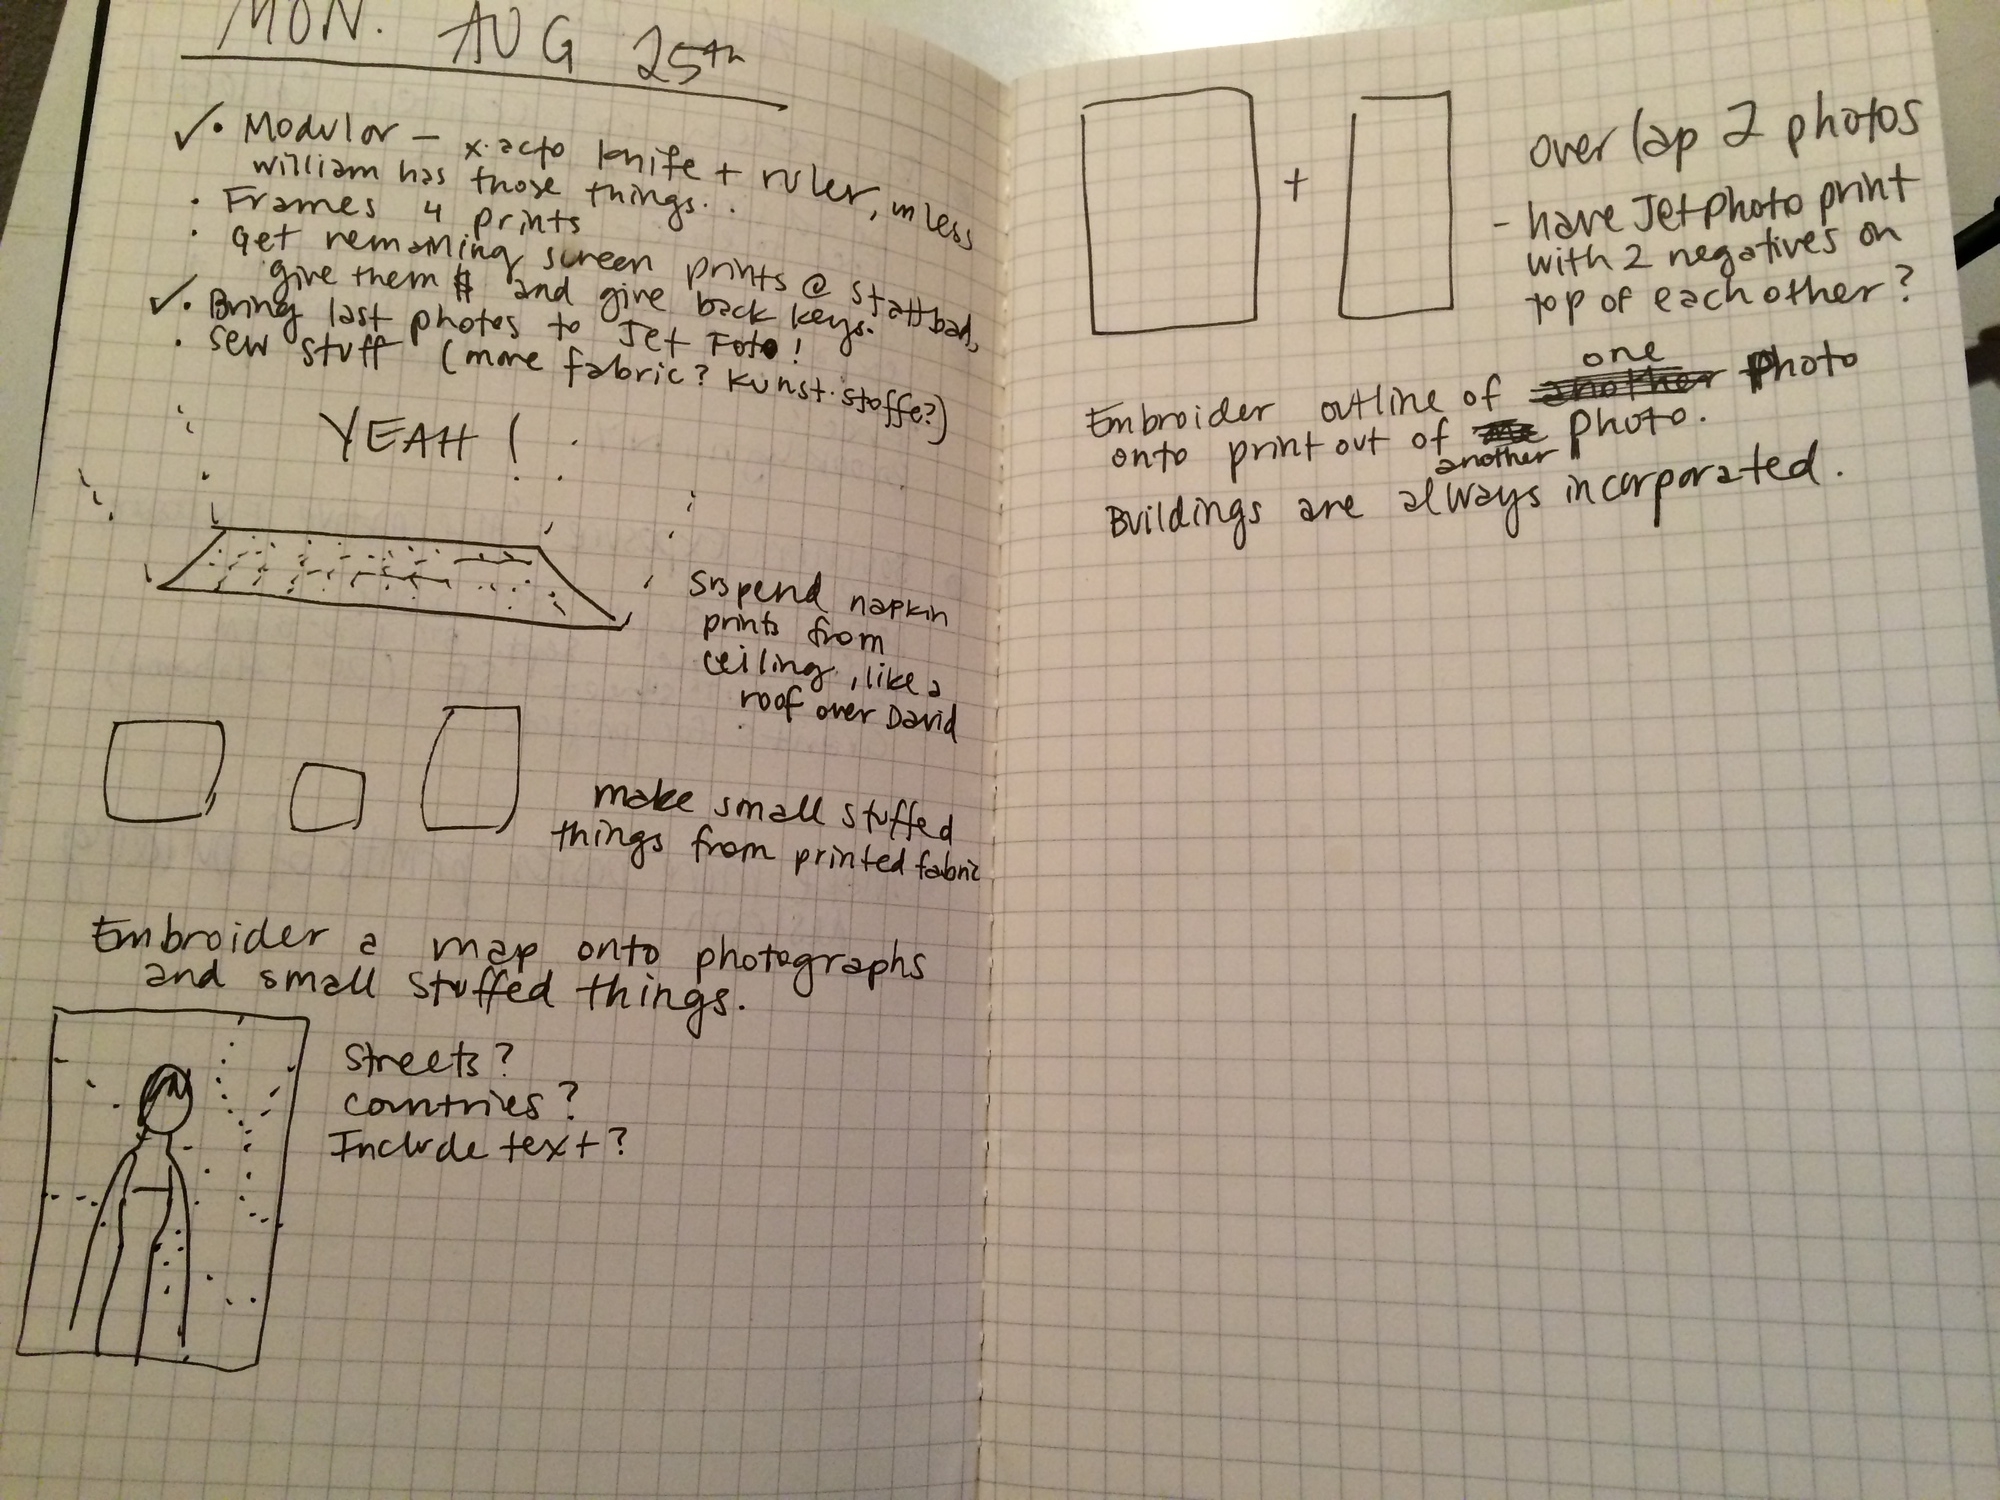 MON. AUG 25th
✓ • Modulor – x-acto knife + ruler, unless
william has those things..
• Frames 4 prints
• Get remaining screen prints @ stattbad,
give them $ and give back keys.
✓ • Bring last photos to Jet Foto!
• Sew stuff (more fabric? Kunst-stoffe?)
YEAH!
Suspend napkin
prints from
ceiling, like a
roof over David
make small stuffed
things from printed fabric
Embroider a map onto photographs
and small stuffed things.
Streets?
Countries?
Include text?
+
overlap 2 photos
- have Jetphoto print
with 2 negatives on
top of each other?
Embroider outline of one photo
onto print out of another photo.
Buildings are always incorporated.